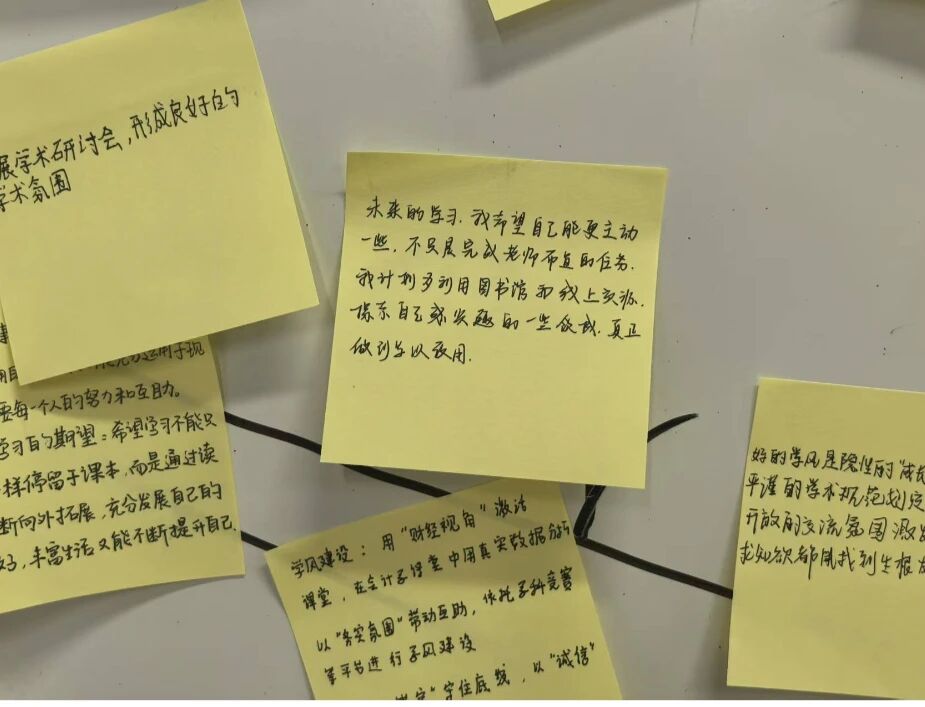 展学术研讨会,形成良好的
学术氛围
未来的学习.我希望自己能更主动
一些.不只是完成老师布置的任务.
我计划多利用图书馆和线上资源.
探索自己感兴趣的一些领域.真正
做到学以致用.
运用于现
每一个人的努力和互助。
学习的期望:希望学习不能只
样停留于课本,而是通过读
断向外拓展,充分发展自己的
好,丰富生活又能不断提升自己.
学风建设:用“财经视角”激活
课堂,在会计学课堂中用真实数据分析
以“务实氛围”带动互助,依托学科竞赛
等平台进行学风建设
守住底线,以“诚信”
好的学风是隐性的“成长
严谨的学术规范划定
开放的交流氛围激发
求知欲都能找到生根发